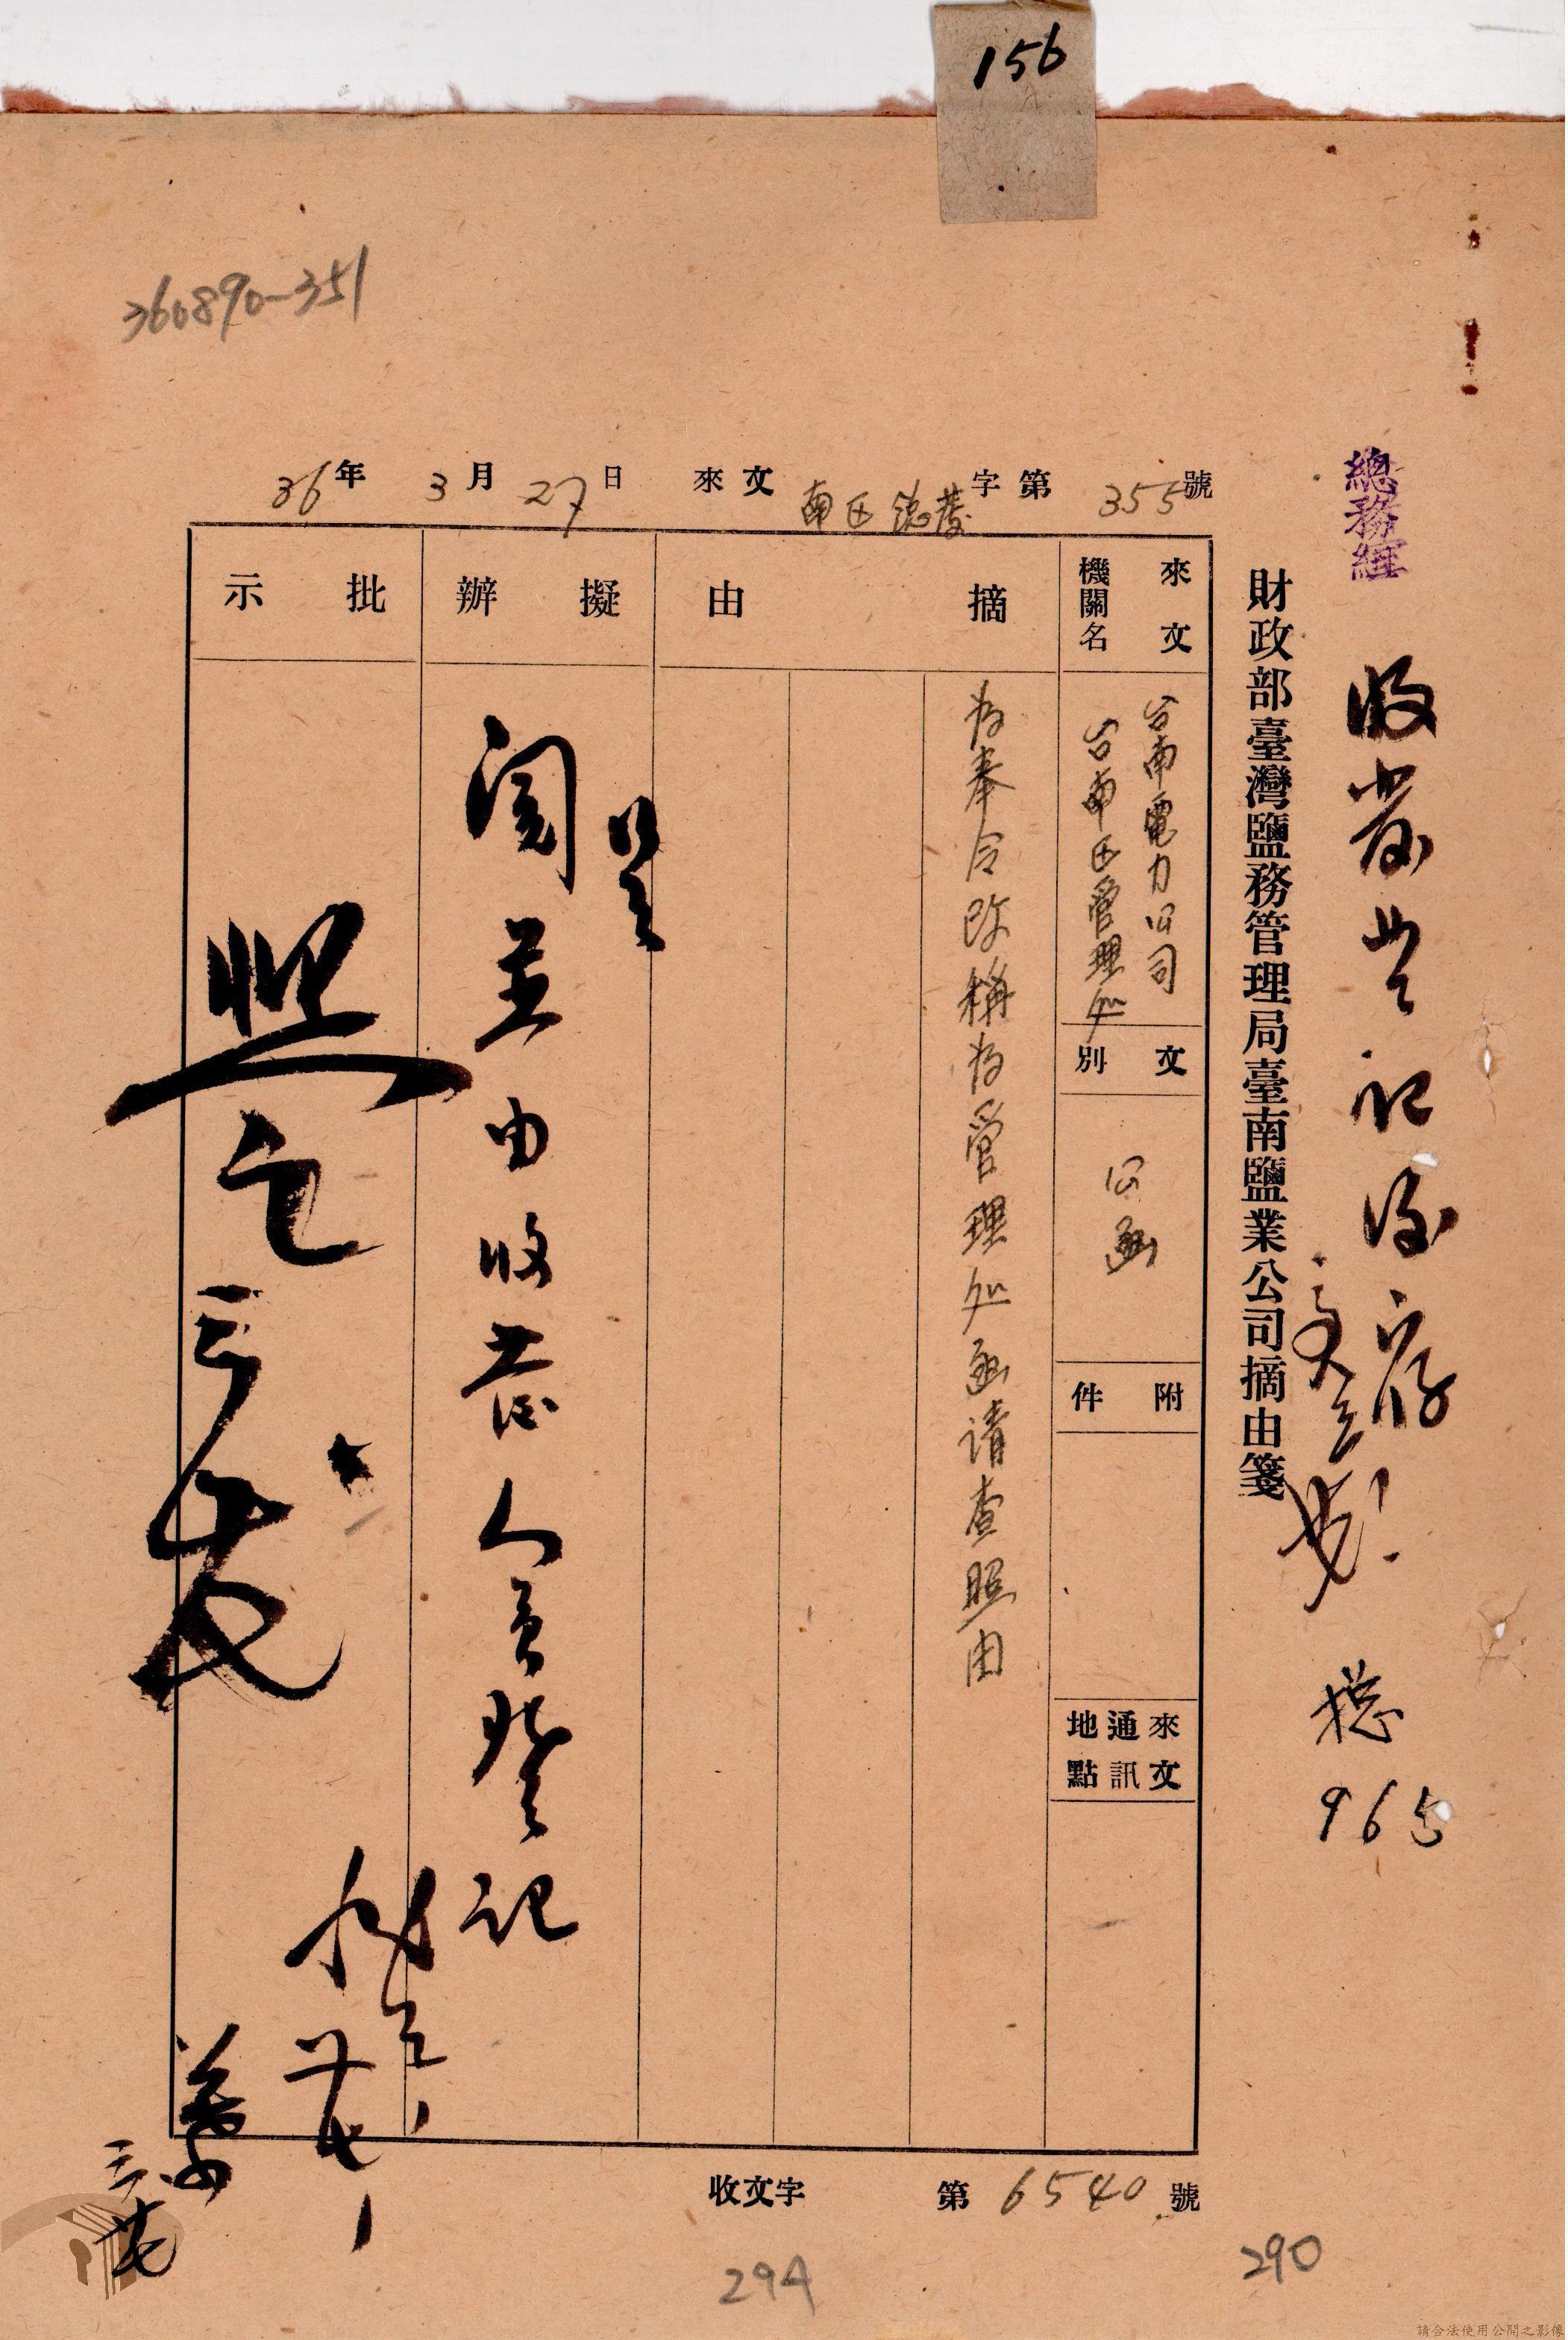 156
360890-351
36年 3月 27日 來文 南区總發字第 355 號
總務組
財政部臺灣鹽務管理局臺南鹽業公司摘由箋
收發登記後存
總
965
來文機關名
台南電力公司
台南区管理処
文別
公函
附件
來文通訊地點
摘由
為奉令改稱為管理処函請查照由
擬辦
呈
閱並由收發人員登記
批示
照之
收文字 第 6540 號
294
290
請合法使用公開之影像